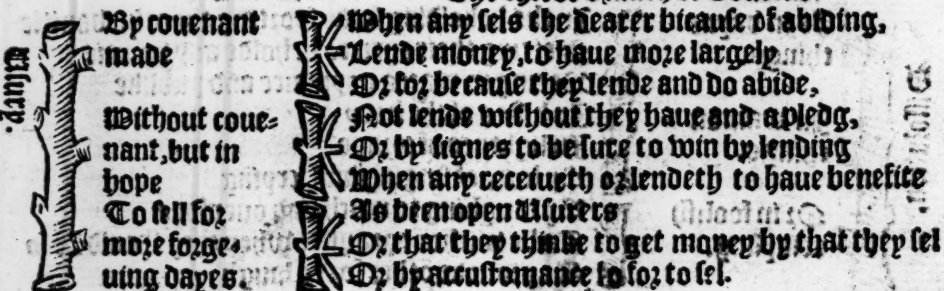 By couenant
made
Without coue=
nant, but in
hope
To sell for
more forge=
uing dayes.
When any sels the dearer bicause of abiding,
Lende money, to haue more largely
Or for because they lende and do abide,
Not lende without they haue and a pledg,
Or by signes to be sure to win by lending
When any receiueth or lendeth to haue benefite
As been open Usurers
Or that they thinke to get money by that they sel
Or by accustomance so for to sel.